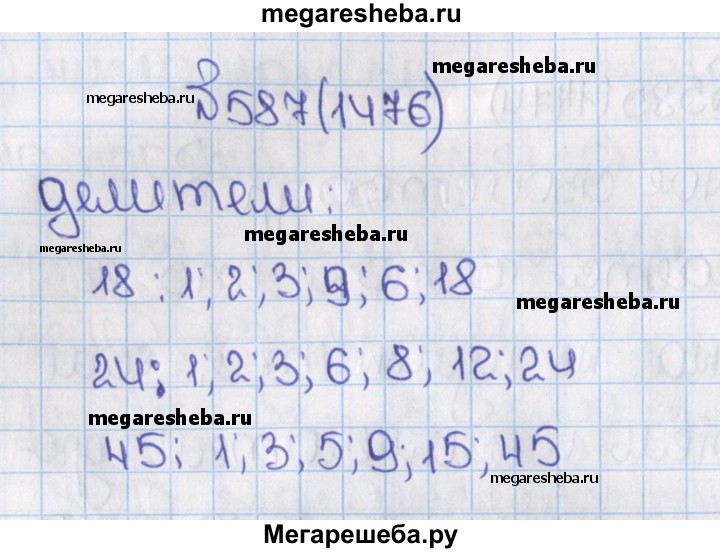 megaresheba.ru
megaresheba.ru
№ 587 (1476)
megaresheba.ru
делители:
megaresheba.ru
megaresheba.ru
18 : 1; 2; 3; 9; 6; 18
megaresheba.ru
24: 1; 2; 3; 6; 8; 12; 24
megaresheba.ru
45; 1; 3; 5; 9; 15; 45
megaresheba.ru
Мегарешеба.ру